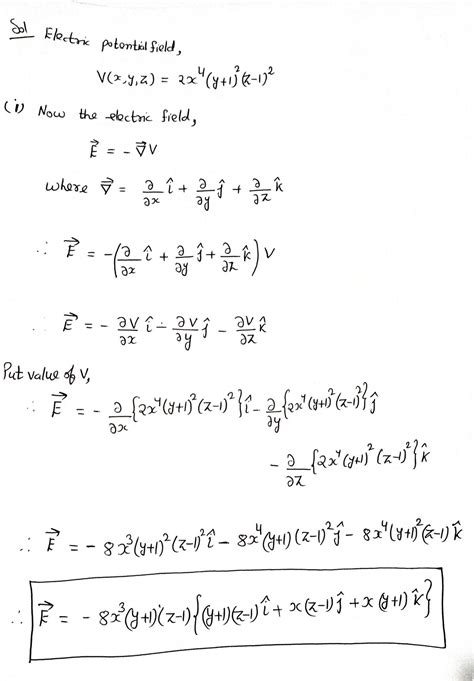 Sol Electric potential field,
V(x,y,z) = 2x⁴(y+1)²(z-1)²
(i) Now the electric field,
E⃗ = - ∇⃗V
where ∇⃗ = ∂/∂x î + ∂/∂y ĵ + ∂/∂z k̂
∴ E⃗ = -(∂/∂x î + ∂/∂y ĵ + ∂/∂z k̂) V
∴ E⃗ = - ∂V/∂x î - ∂V/∂y ĵ - ∂V/∂z k̂
Put value of V,
∴ E⃗ = - ∂/∂x {2x⁴(y+1)²(z-1)²} î - ∂/∂y {2x⁴(y+1)²(z-1)²} ĵ
- ∂/∂z {2x⁴(y+1)²(z-1)²} k̂
∴ E⃗ = - 8x³(y+1)²(z-1)² î - 8x⁴(y+1)(z-1)² ĵ - 8x⁴(y+1)²(z-1) k̂
∴ E⃗ = - 8x³(y+1)(z-1) {(y+1)(z-1) î + x(z-1) ĵ + x(y+1) k̂}